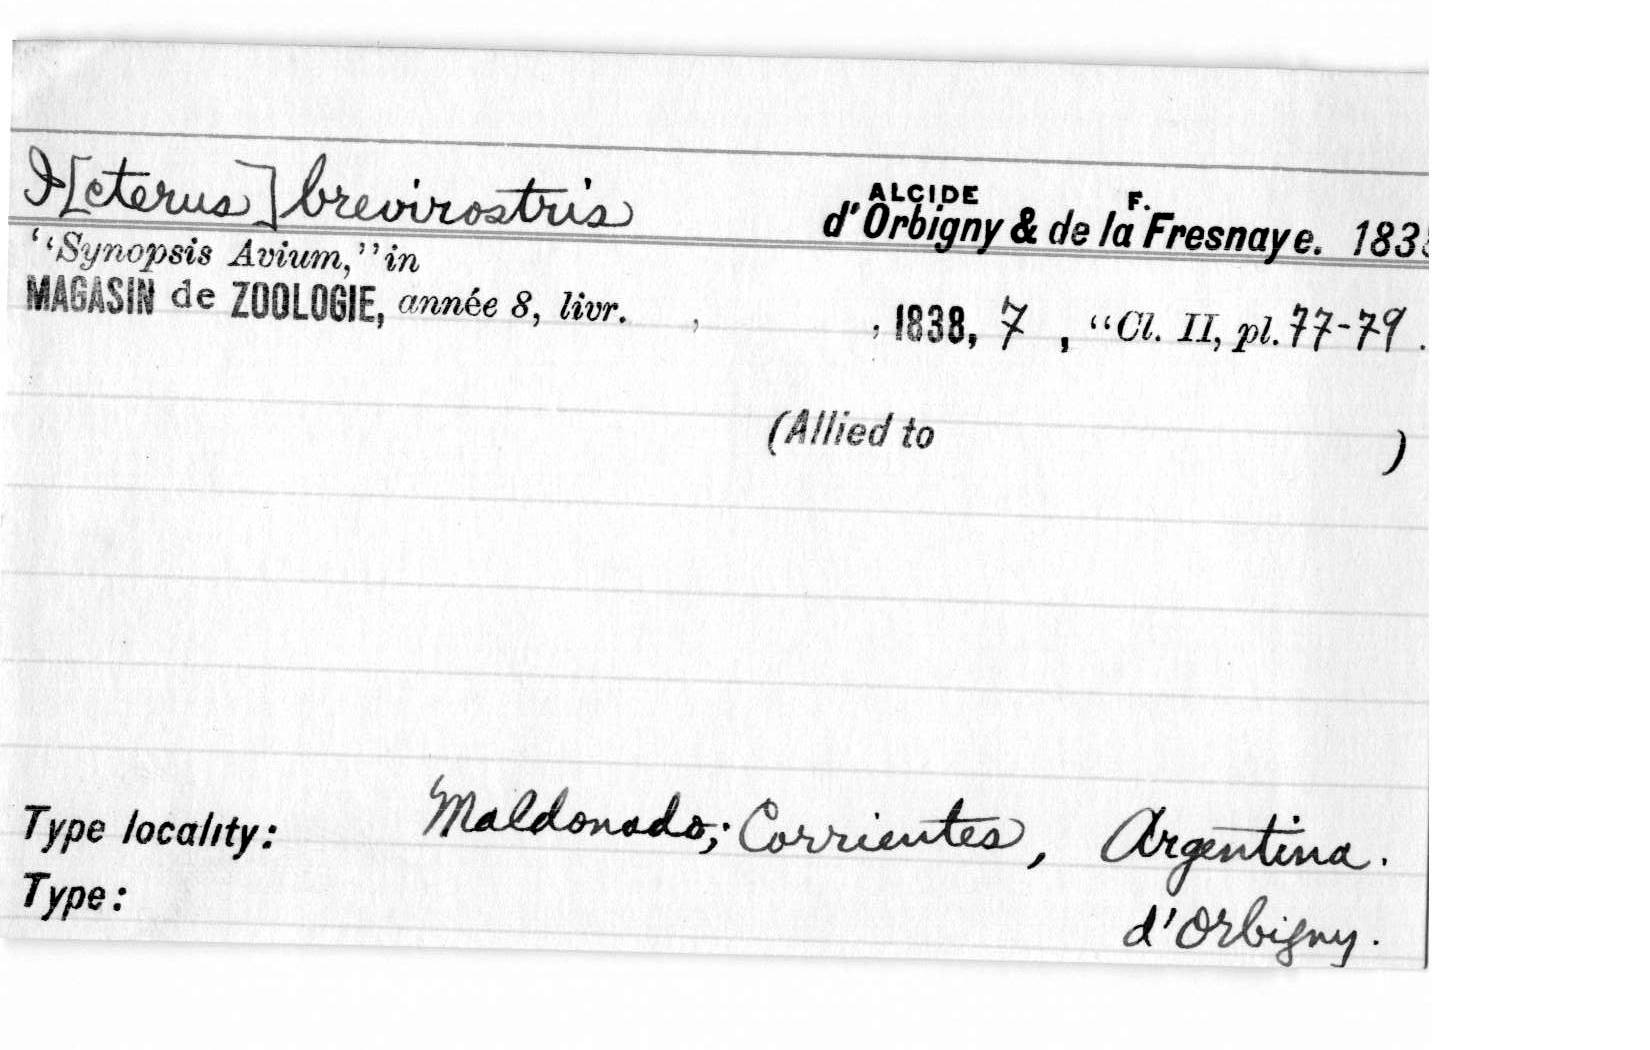 I[cterus] brevirostris
ALCIDE F.
d'Orbigny & de la Fresnaye. 183
"Synopsis Avium," in
MAGASIN de ZOOLOGIE, année 8, livr. , , 1838, 7 , "Cl. II, pl. 77-79 .
(Allied to )
Type locality: Maldonado; Corrientes, Argentina.
Type: d'Orbigny.